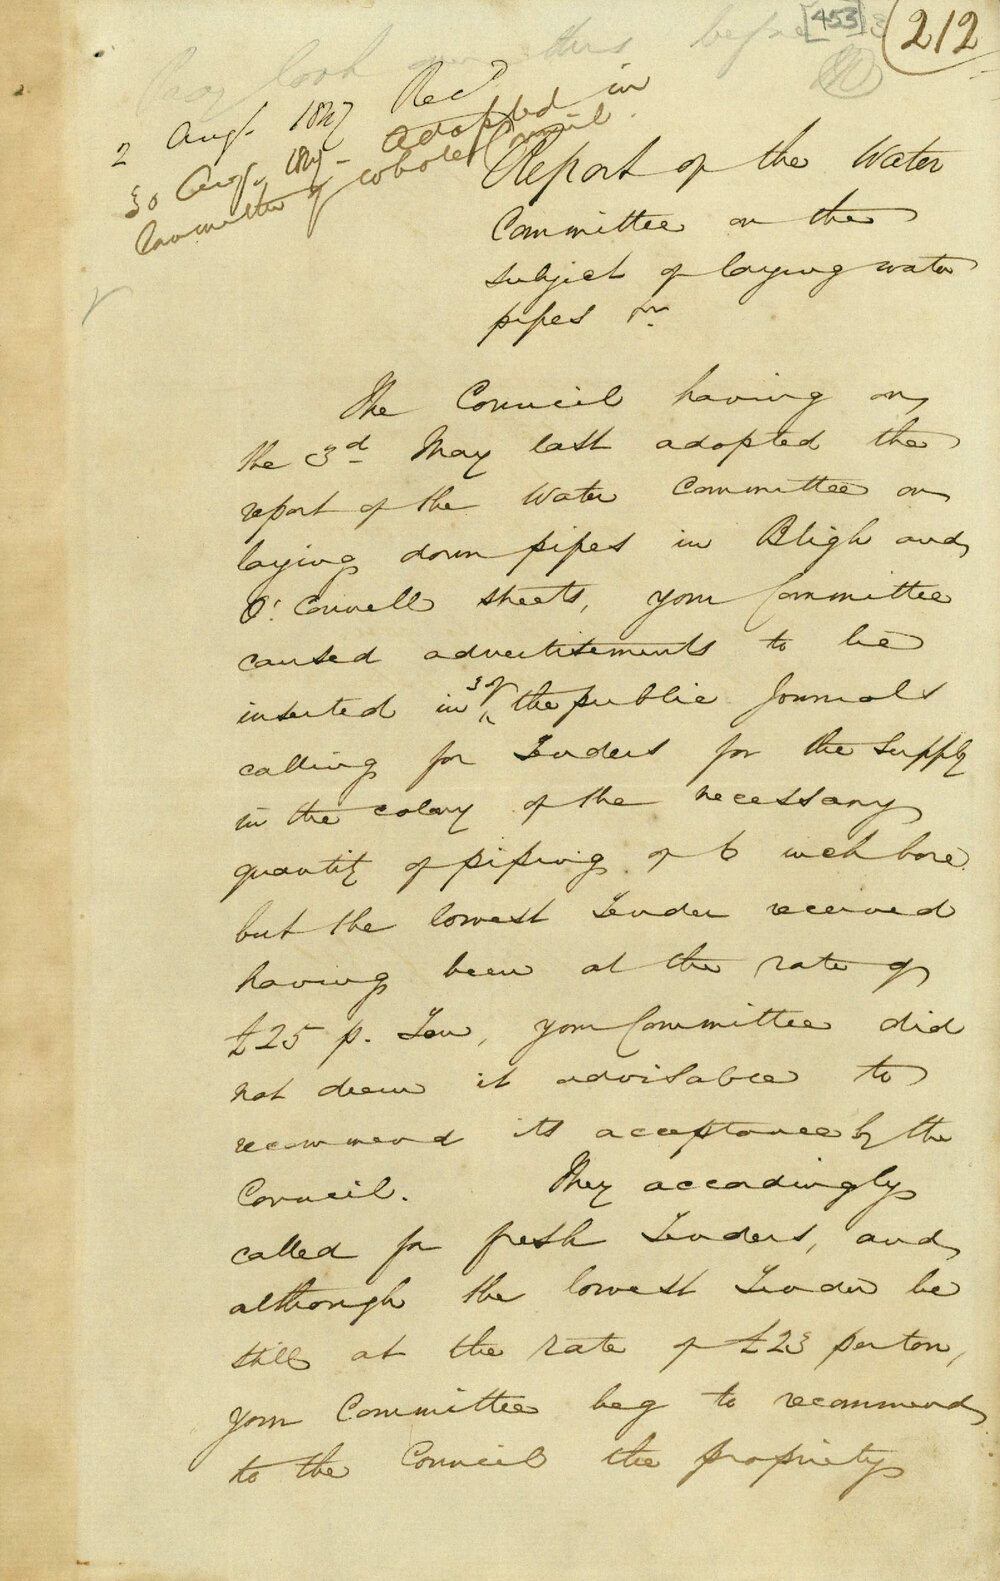 [453]
212
look this before
2 Augt. 1847 Recd
30 Augt. 1847 - adopted in
Committee of whole Council.
Report of the Water
Committee on the
subject of laying water
pipes
The Council having on
the 3d May last adopted the
report of the Water Committee on
laying down pipes in Bligh and
O'Connell streets, your Committee
caused advertisements to be
inserted in 3 of the public Journals
calling for Tenders for the supply
in the colony of the necessary
quantity of piping of 6 inch bore
but the lowest Tender received
having been at the rate of
£25 p. Ton, your Committee did
not deem it advisable to
recommend its acceptance by the
Council. They accordingly
called for fresh Tenders, and
although the lowest Tender be
still at the rate of £23 per ton,
your Committee beg to recommend
to the Council the propriety